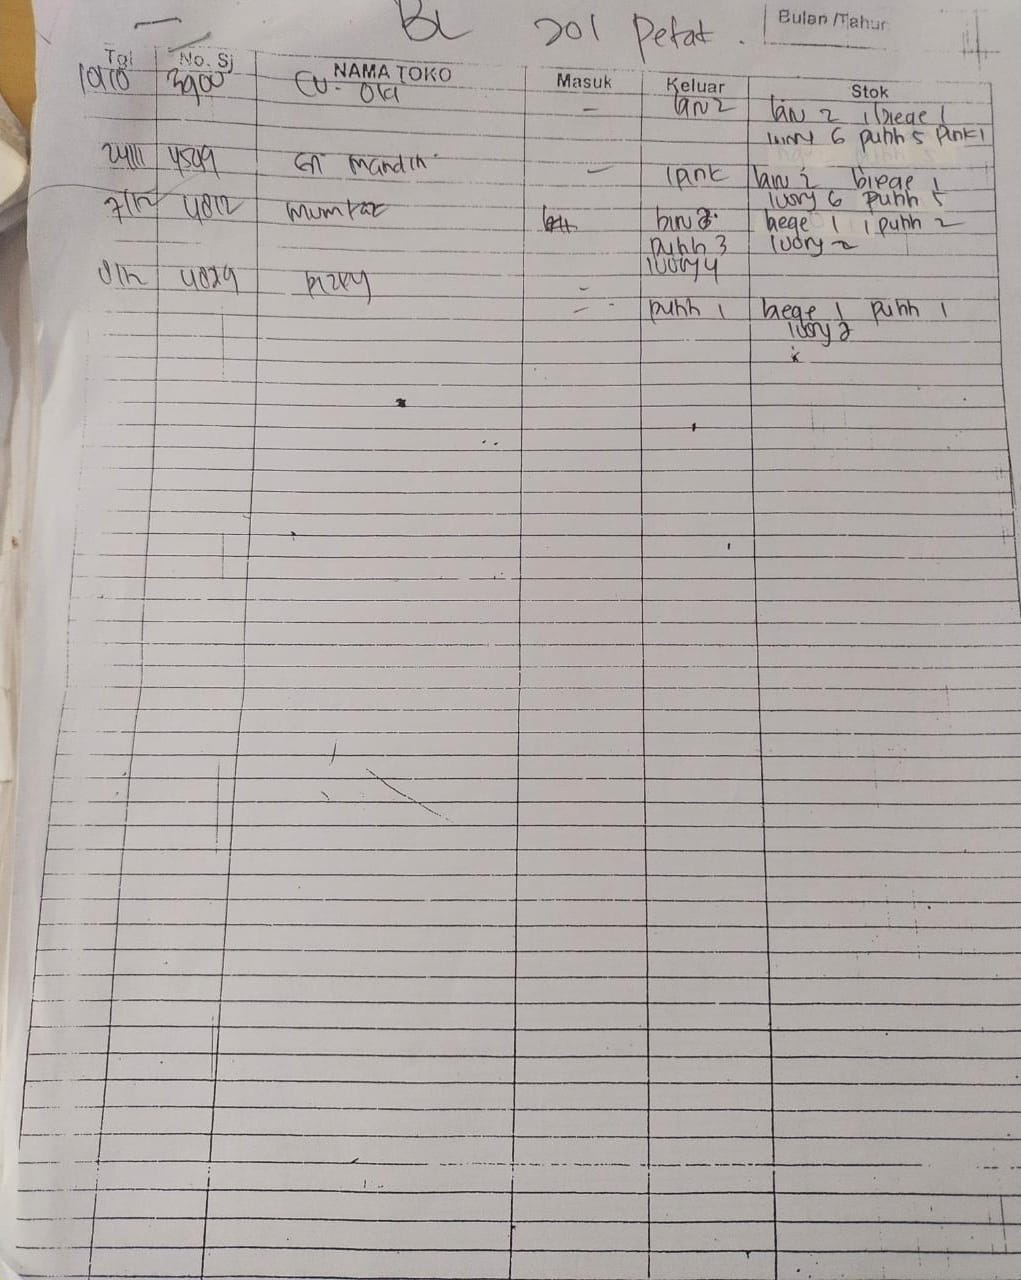 BL 201 Petat.
Bulan /Tahun
Tgl No. Sj NAMA TOKO Masuk Keluar Stok
3900 CV. Oki
- biru 2 biru 2 1 biege 1
Ivory 6 putih 5 Pink 1
24/11 4509 Mandiri
- 1 pink biru 2 biege 1
Ivory 6 putih 5
7/12 4812 Mumtaz biru 2 bege 1 1 putih 2
putih 3 Ivory 2
Ivory 4
8/12 4829 Rizky -
- putih 1 bege 1 putih 1
Ivory 2